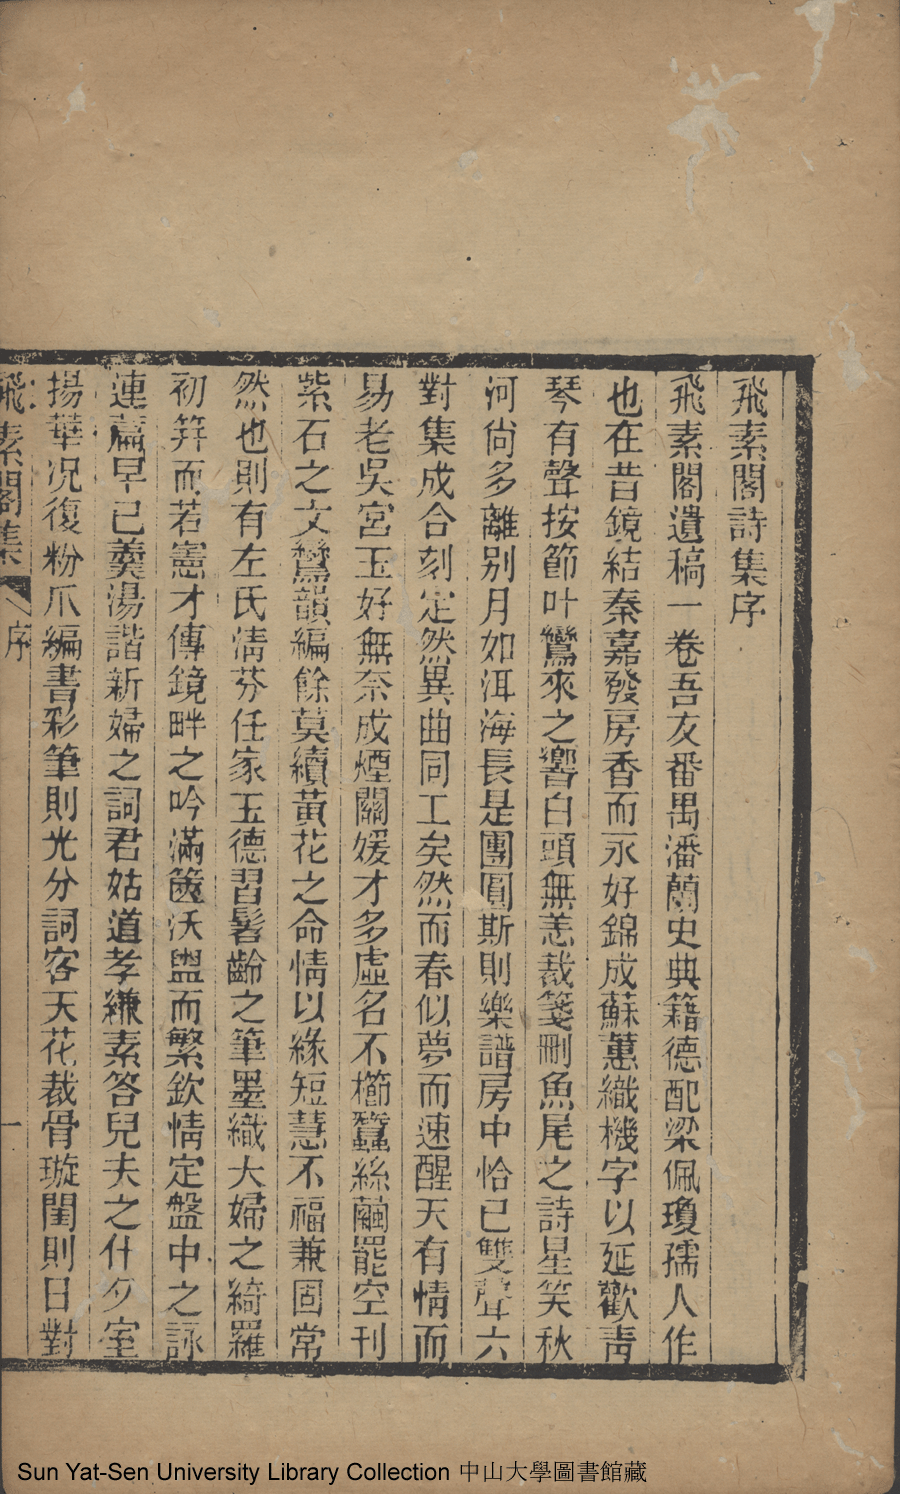 飛素閣詩集序
飛素閣遺稿一卷吾友番禺潘蘭史典籍德配梁佩瓊孺人作
也在昔鏡結秦嘉發房香而永好錦成蘇蕙織機字以延歡靑
琴有聲按節叶鸞來之響白頭無恙裁箋刪魚尾之詩星笑秋
河尙多離别月如洱海長是團圓斯則樂譜房中恰已雙聲六
對集成合刻定然異曲同工矣然而春似夢而速醒天有情而
易老吳宮玉好無奈成煙關媛才多虛名不櫛蠶絲繭罷空刊
紫石之文鸞韻編餘莫續黃花之命情以緣短慧不福兼固常
然也則有左氏淸芬任家玉德習髫齡之筆墨織大婦之綺羅
初笄而若憲才傳鏡畔之吟滿篋沃盥而繁欽情定盤中之詠
連篇早已羹湯諧新婦之詞君姑道孝縑素答兒夫之什夕室
揚華况復粉爪編書彩筆則光分詞客天花裁骨璇閨則日對
飛素閣集 序 一
Sun Yat-Sen University Library Collection 中山大學圖書館藏